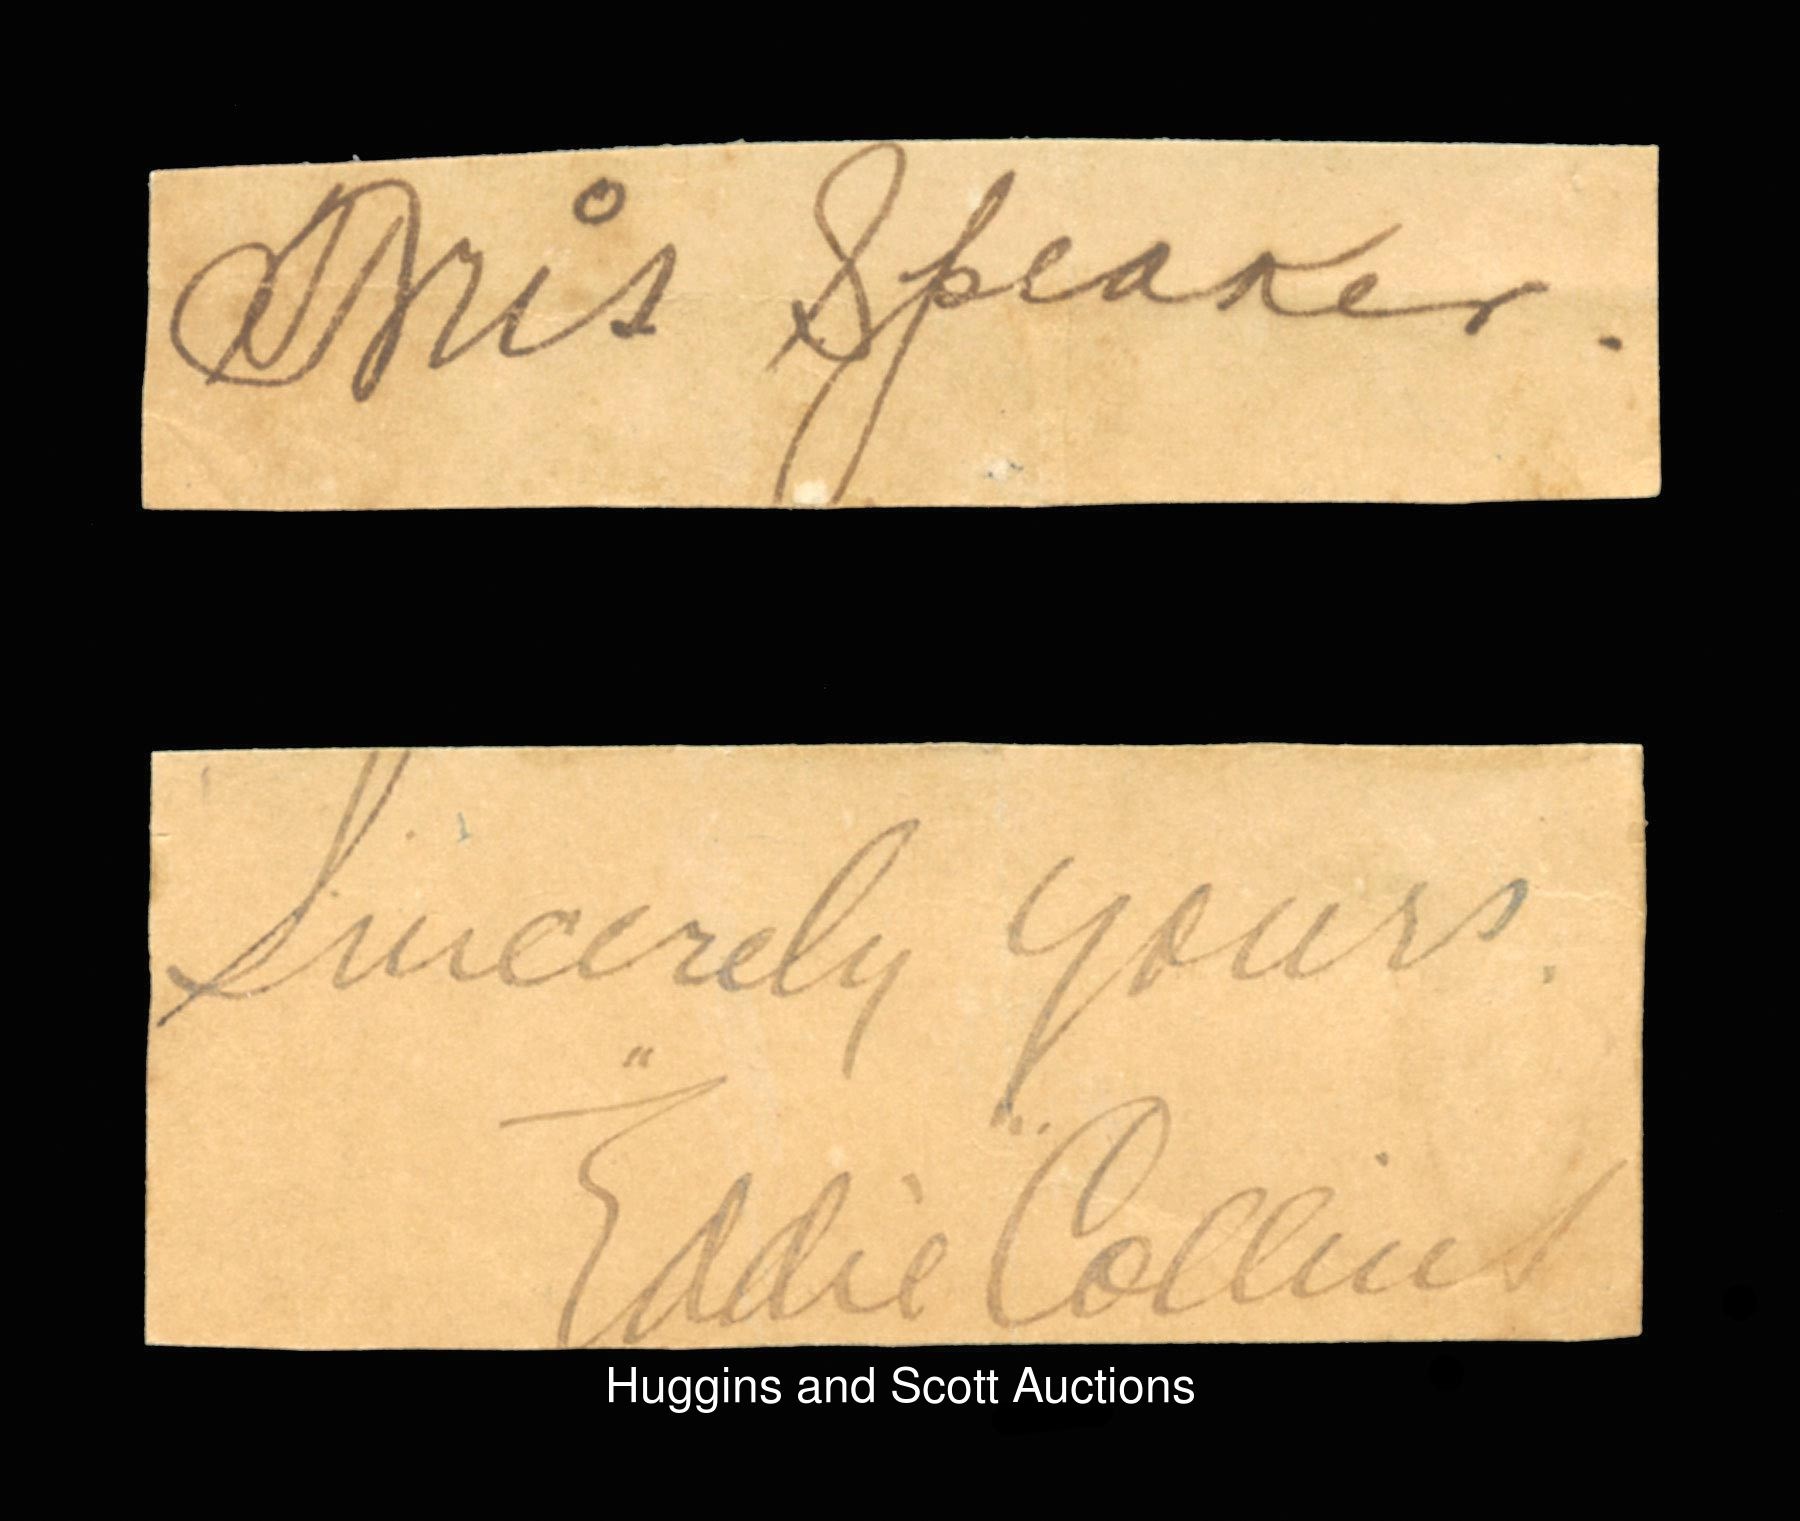 Tris Speaker.
Sincerely yours.
"Eddie" Collins
Huggins and Scott Auctions